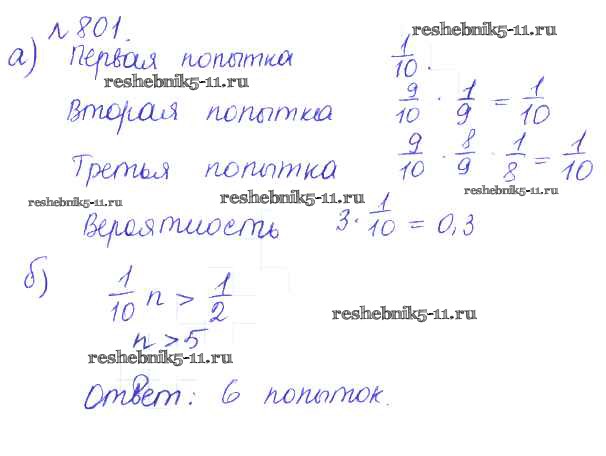 № 801.
reshebnik5-11.ru
а) Первая попытка 1/10.
reshebnik5-11.ru
Вторая попытка 9/10 · 1/9 = 1/10
Третья попытка 9/10 · 8/9 · 1/8 = 1/10
reshebnik5-11.ru reshebnik5-11.ru reshebnik5-11.ru
Вероятность 3 · 1/10 = 0,3
б) 1/10 n > 1/2
reshebnik5-11.ru
n > 5
reshebnik5-11.ru
Ответ: 6 попыток.